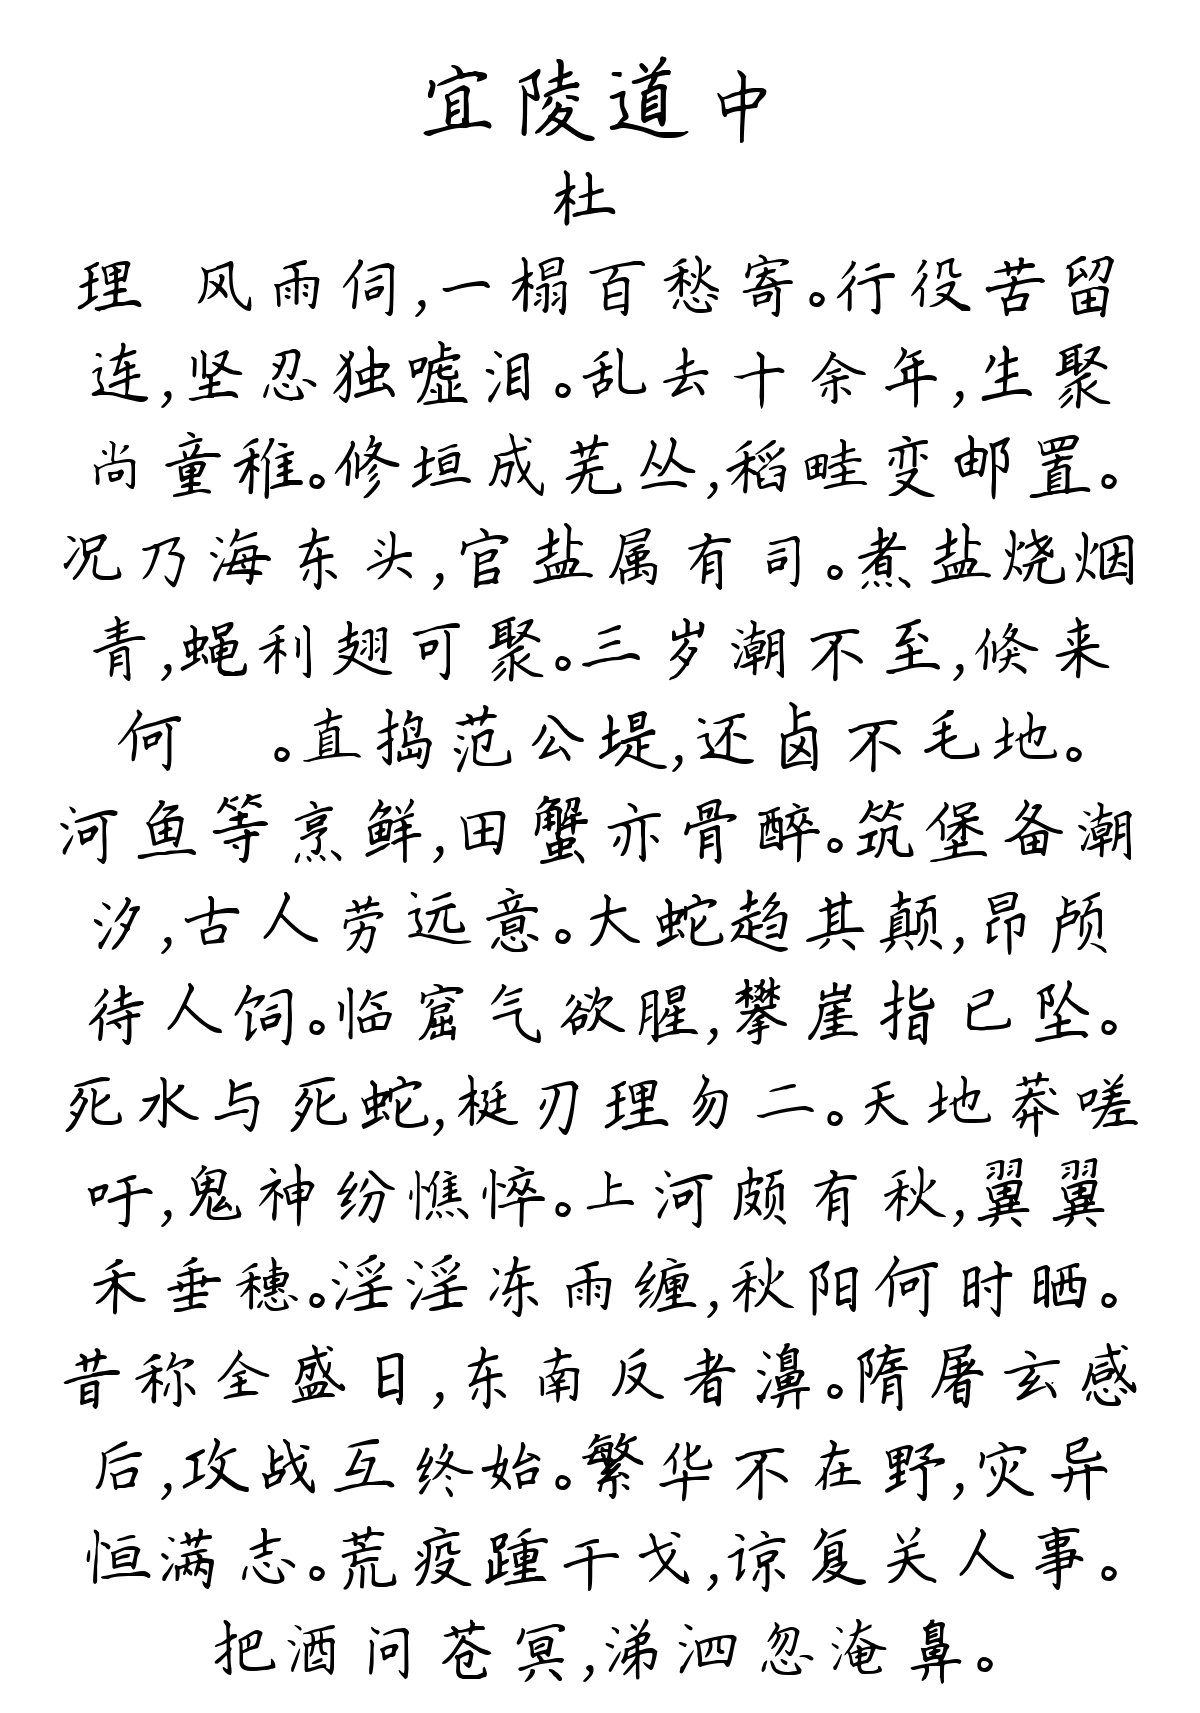 宜陵道中
杜
理 风雨伺,一榻百愁寄。行役苦留
连,坚忍独嘘泪。乱去十余年,生聚
尚童稚。修垣成芜丛,稻畦变邮置。
况乃海东头,官盐属有司。煮盐烧烟
青,蝇利翅可聚。三岁潮不至,倏来
何 。直捣范公堤,还卤不毛地。
河鱼等烹鲜,田蟹亦骨醉。筑堡备潮
汐,古人劳远意。大蛇趋其颠,昂颅
待人饲。临窟气欲腥,攀崖指已坠。
死水与死蛇,梃刃理勿二。天地莽嗟
吁,鬼神纷憔悴。上河颇有秋,翼翼
禾垂穗。淫淫冻雨缠,秋阳何时晒。
昔称全盛日,东南反者濞。隋屠玄感
后,攻战互终始。繁华不在野,灾异
恒满志。荒疫踵干戈,谅复关人事。
把酒问苍冥,涕泗忽淹鼻。